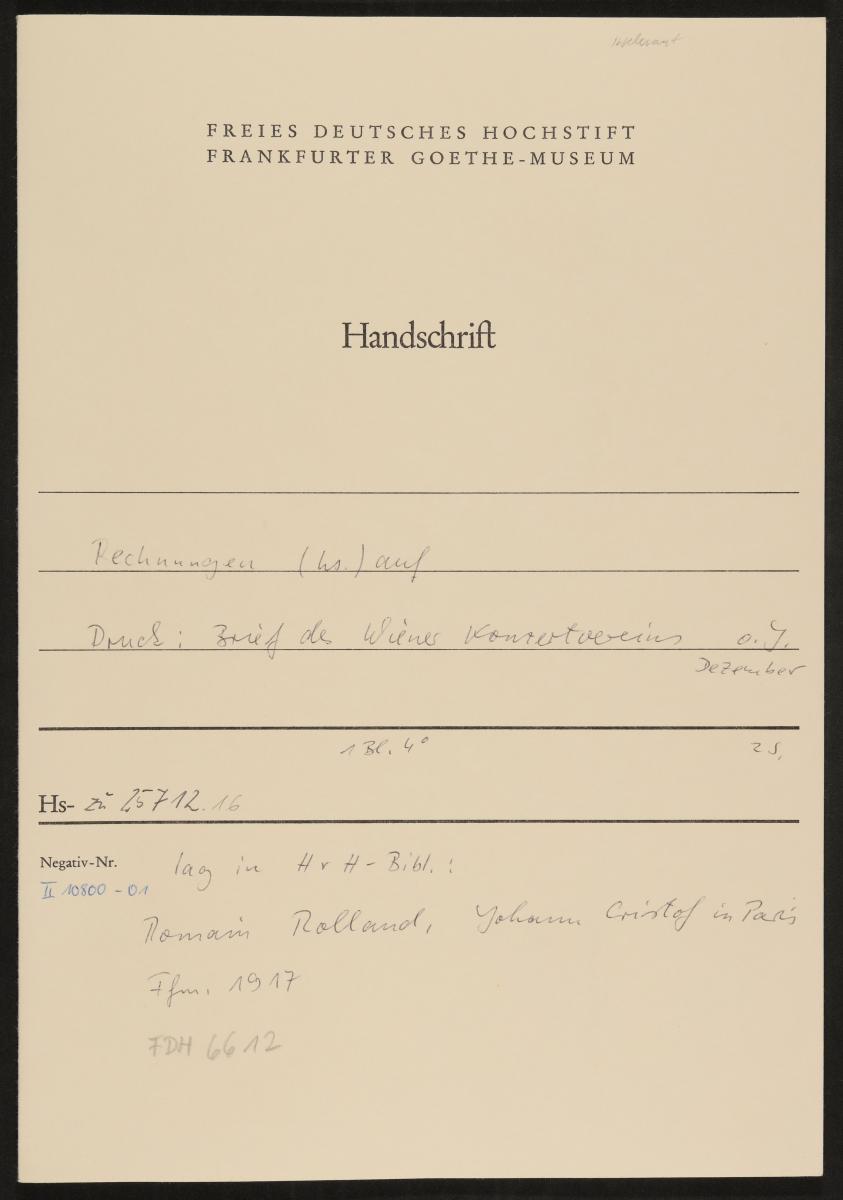 irrelevant
FREIES DEUTSCHES HOCHSTIFT
FRANKFURTER GOETHE-MUSEUM
Handschrift
Rechnungen (hs.) auf
Druck: Brief des Wiener Konzertvereins o. J.
Dezember
1 Bl. 4° 2 S.
Hs- zu 25712.16
Negativ-Nr. lag in HvH-Bibl.:
II 10800 - 01
Romain Rolland, Johann Cristof in Paris
Ffm. 1917
FDH 6612